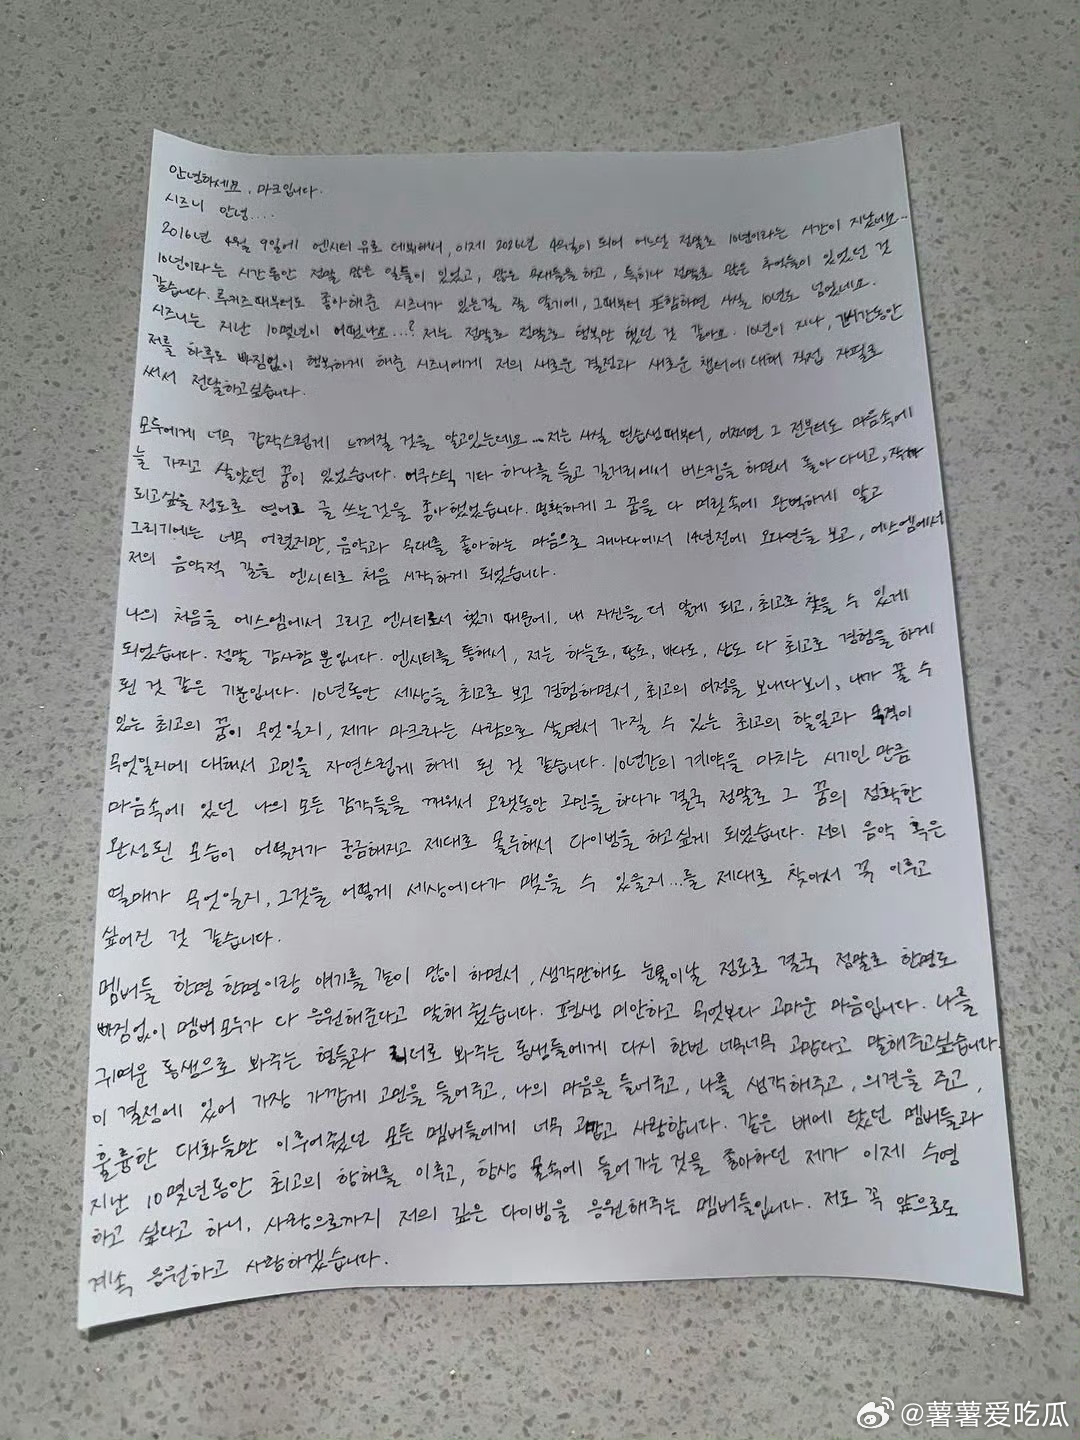 안녕하세요, 마크입니다.
시즈니 안녕....
2016년 4월 9일에 엔시티 유로 데뷔해서, 이제 2026년 4월이 되어 어느새 정말로 10년이라는 시간이 지났네요..
10년이라는 시간동안 정말 많은 일들이 있었고, 많은 무대들을 하고, 특히나 정말로 많은 추억들이 있었던 것
같습니다. 루키즈때부터도 좋아해준 시즈니가 있는걸 잘 알기에, 그때부터 포함하면 사실 10년도 넘었네요.
시즈니는 지난 10몇년이 어땠나요...? 저는 정말로 정말로 행복만 했던 것 같아요. 10년이 지나, 긴시간동안
저를 하루도 빠짐없이 행복하게 해준 시즈니에게 저의 새로운 결정과 새로운 챕터에 대해 직접 자필로
써서 전달하고싶습니다.
모두에게 너무 갑작스럽게 느껴질 것을 알고있는데요... 저는 사실 연습생때부터, 어쩌면 그 전부터도 마음속에
늘 가지고 살았던 꿈이 있었습니다. 어쿠스틱 기타 하나를 들고 길거리에서 버스킹을 하면서 돌아다니고, 작가가
되고싶을 정도로 영어로 글 쓰는것을 좋아했었습니다. 명확하게 그 꿈을 다 머릿속에 완벽하게 알고
그리기에는 너무 어렸지만, 음악과 무대를 좋아하는 마음으로 캐나다에서 14년전에 오디션을 보고, 에스엠에서
저의 음악적 길을 엔시티로 처음 시작하게 되었습니다.
나의 처음을 에스엠에서 그리고 엔시티로서 했기 때문에, 내 자신을 더 알게 되고, 최고로 찾을 수 있게
되었습니다. 정말 감사할 뿐입니다. 엔시티를 통해서, 저는 하늘도, 땅도, 바다도, 산도 다 최고로 경험을 하게
된 것 같은 기분입니다. 10년동안 세상을 최고로 보고 경험하면서, 최고의 여정을 보내다보니, 내가 꿀 수
있는 최고의 꿈이 무엇일지, 제가 마크라는 사람으로 살면서 가질 수 있는 최고의 할일과 목적이
무엇일지에 대해서 고민을 자연스럽게 하게 된 것 같습니다. 10년간의 계약을 마치는 시기인 만큼
마음속에 있던 나의 모든 감각들을 깨워서 오랫동안 고민을 하다가 결국 정말로 그 꿈의 정확한
완성된 모습이 어떨지가 궁금해지고 제대로 몰두해서 다이빙을 하고싶게 되었습니다. 저의 음악 혹은
열매가 무엇일지, 그것을 어떻게 세상에다가 맺을 수 있을지...를 제대로 찾아서 꼭 이루고
싶어진 것 같습니다.
멤버들 한명 한명이랑 얘기를 같이 많이 하면서, 생각만해도 눈물이날 정도로 결국 정말로 한명도
빠짐없이 멤버 모두가 다 응원해준다고 말해 줬습니다. 평생 미안하고 무엇보다 고마운 마음입니다. 나를
귀여운 동생으로 봐주는 형들과 리더로 봐주는 동생들에게 다시 한번 너무너무 고맙다고 말해주고싶습니다.
이 결정에 있어 가장 가깝게 고민을 들어주고, 나의 마음을 들어주고, 나를 생각해주고, 의견을 주고,
훌륭한 대화들만 이루어줬던 모든 멤버들에게 너무 고맙고 사랑합니다. 같은 배에 탔던 멤버들과
지난 10몇년동안 최고의 항해를 이루고, 항상 물속에 들어가는 것을 좋아하던 제가 이제 수영
하고 싶다고 하니, 사랑으로까지 저의 깊은 다이빙을 응원해주는 멤버들입니다. 저도 꼭 앞으로도
계속 응원하고 사랑하겠습니다.
@薯薯爱吃瓜